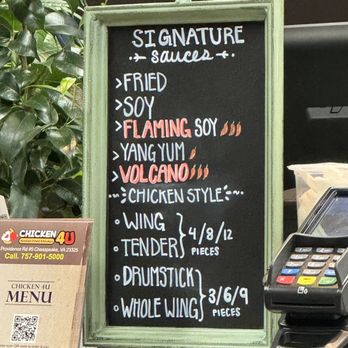 SIGNATURE
sauces
>FRIED
>SOY
>FLAMING SOY
>YANGYUM
>VOLCANO
CHICKEN STYLE
• WING
• TENDER
4/8/12
PIECES
• DRUMSTICK
• WHOLE WING
3/6/9
PIECES
CHICKEN 4U
Providence Rd #5 Chesapeake, VA 23325
Call. 757-901-5000
CHICKEN 4U
MENU